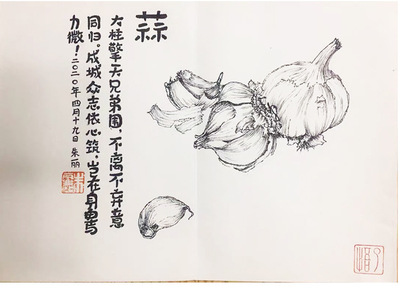 蒜
大柱擎天兄弟围,不离不弃意
同归。成城众志依心筑,岂在身
力微!二〇二〇年四月十九日 朱丽